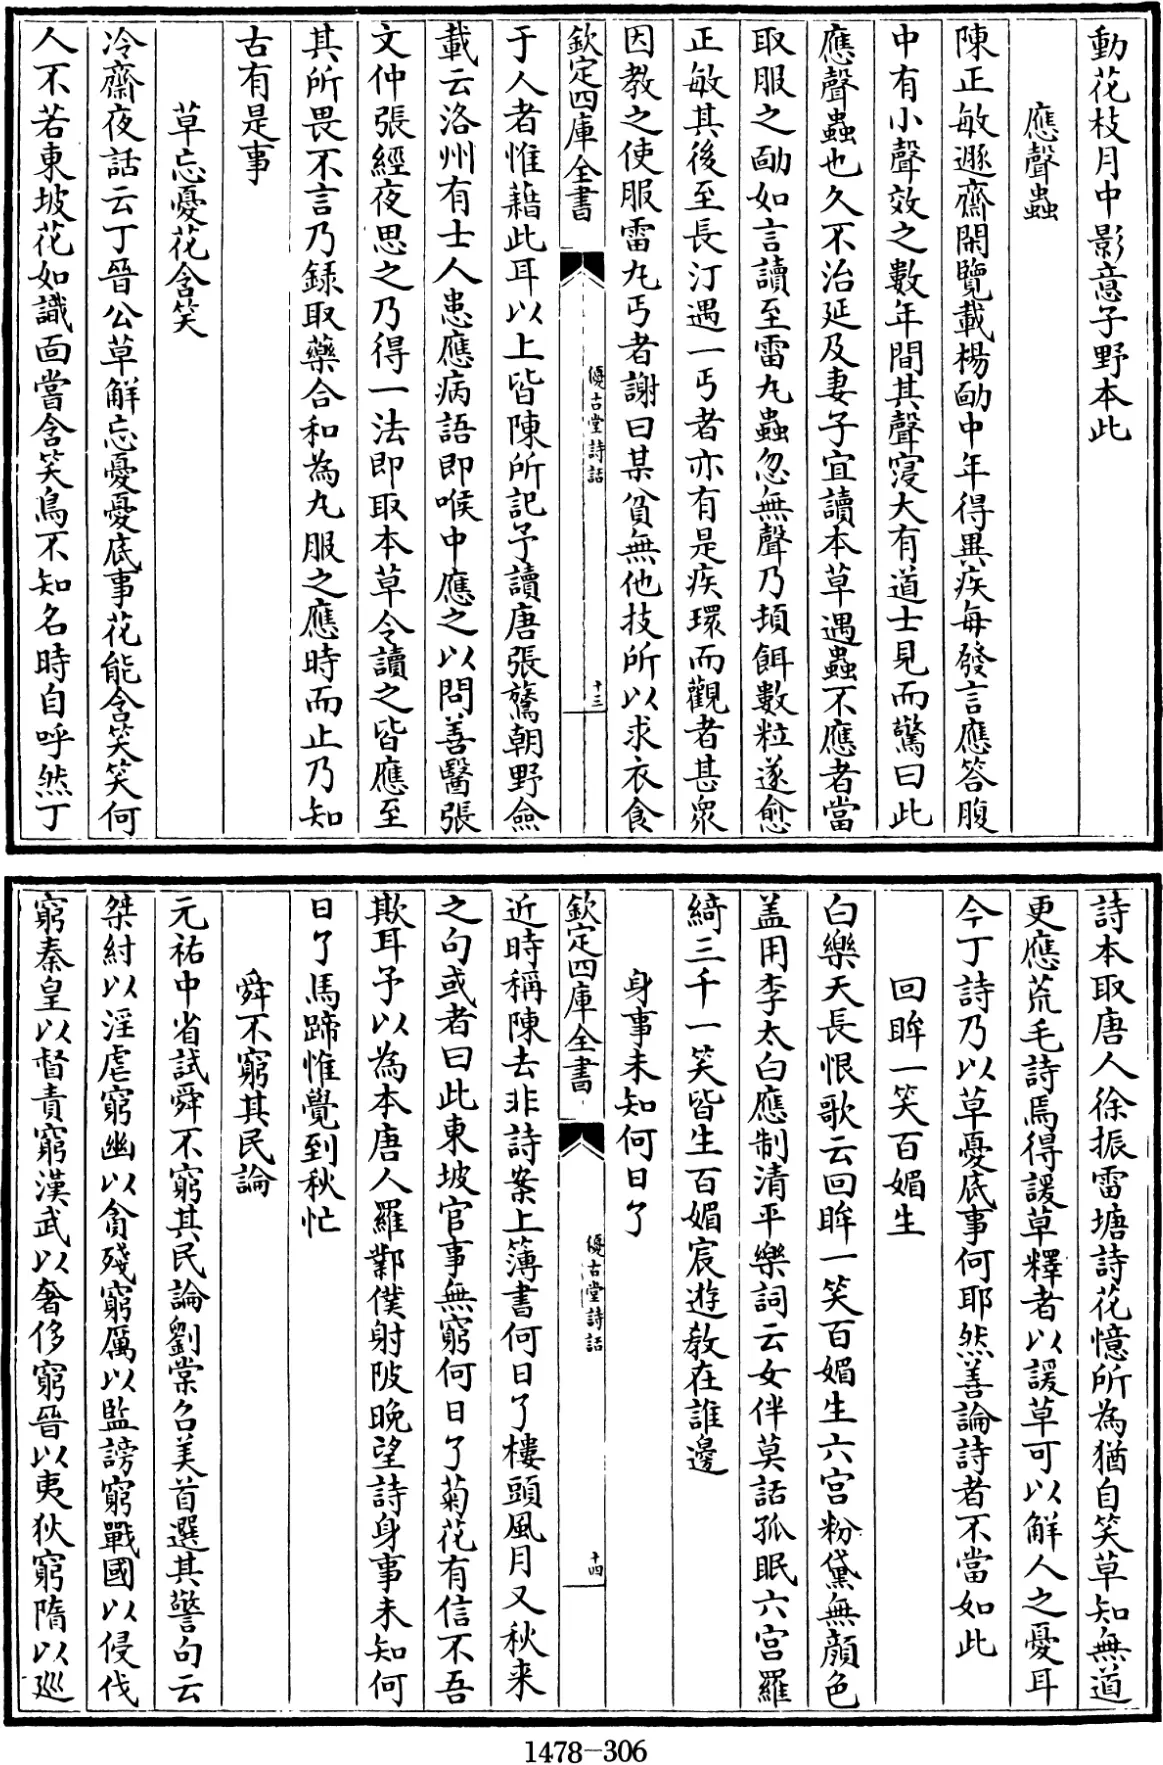 動花枝月中影意子野本此
應聲蟲
陳正敏遯齋閑覽載楊勔中年得異疾每發言應答腹
中有小聲效之數年間其聲寖大有道士見而驚曰此
應聲蟲也久不治延及妻子宜讀本草遇蟲不應者當
取服之勔如言讀至雷丸蟲忽無聲乃頓餌數粒遂愈
正敏其後至長汀遇一丐者亦有是疾環而觀者甚衆
因教之使服雷丸丐者謝曰某貧無他技所以求衣食
欽定四庫全書
優古堂詩話
十三
于人者惟藉此耳以上皆陳所記予讀唐張鷟朝野僉
載云洛州有士人患應病語即喉中應之以問善醫張
文仲張經夜思之乃得一法即取本草令讀之皆應至
其所畏不言乃録取藥合和為丸服之應時而止乃知
古有是事
草忘憂花含笑
冷齋夜話云丁晉公草解忘憂憂底事花能含笑笑何
人不若東坡花如識面嘗含笑鳥不知名時自呼然丁
詩本取唐人徐振雷塘詩花憶所為猶自笑草知無道
更應荒毛詩焉得諼草釋者以諼草可以解人之憂耳
今丁詩乃以草憂底事何耶然善論詩者不當如此
回眸一笑百媚生
白樂天長恨歌云回眸一笑百媚生六宫粉黛無顔色
盖用李太白應制清平樂詞云女伴莫話孤眠六宫羅
綺三千一笑皆生百媚宸遊教在誰邊
身事未知何日了
欽定四庫全書
優古堂詩話
十四
近時稱陳去非詩案上簿書何日了樓頭風月又秋来
之句或者曰此東坡官事無窮何日了菊花有信不吾
欺耳予以為本唐人羅鄴僕射陂晚望詩身事未知何
日了馬蹄惟覺到秋忙
舜不窮其民論
元祐中省試舜不窮其民論劉棠名美首選其警句云
桀紂以淫虐窮幽以貪殘窮厲以監謗窮戰國以侵伐
窮秦皇以督責窮漢武以奢侈窮晉以夷狄窮隋以廵
1478-306